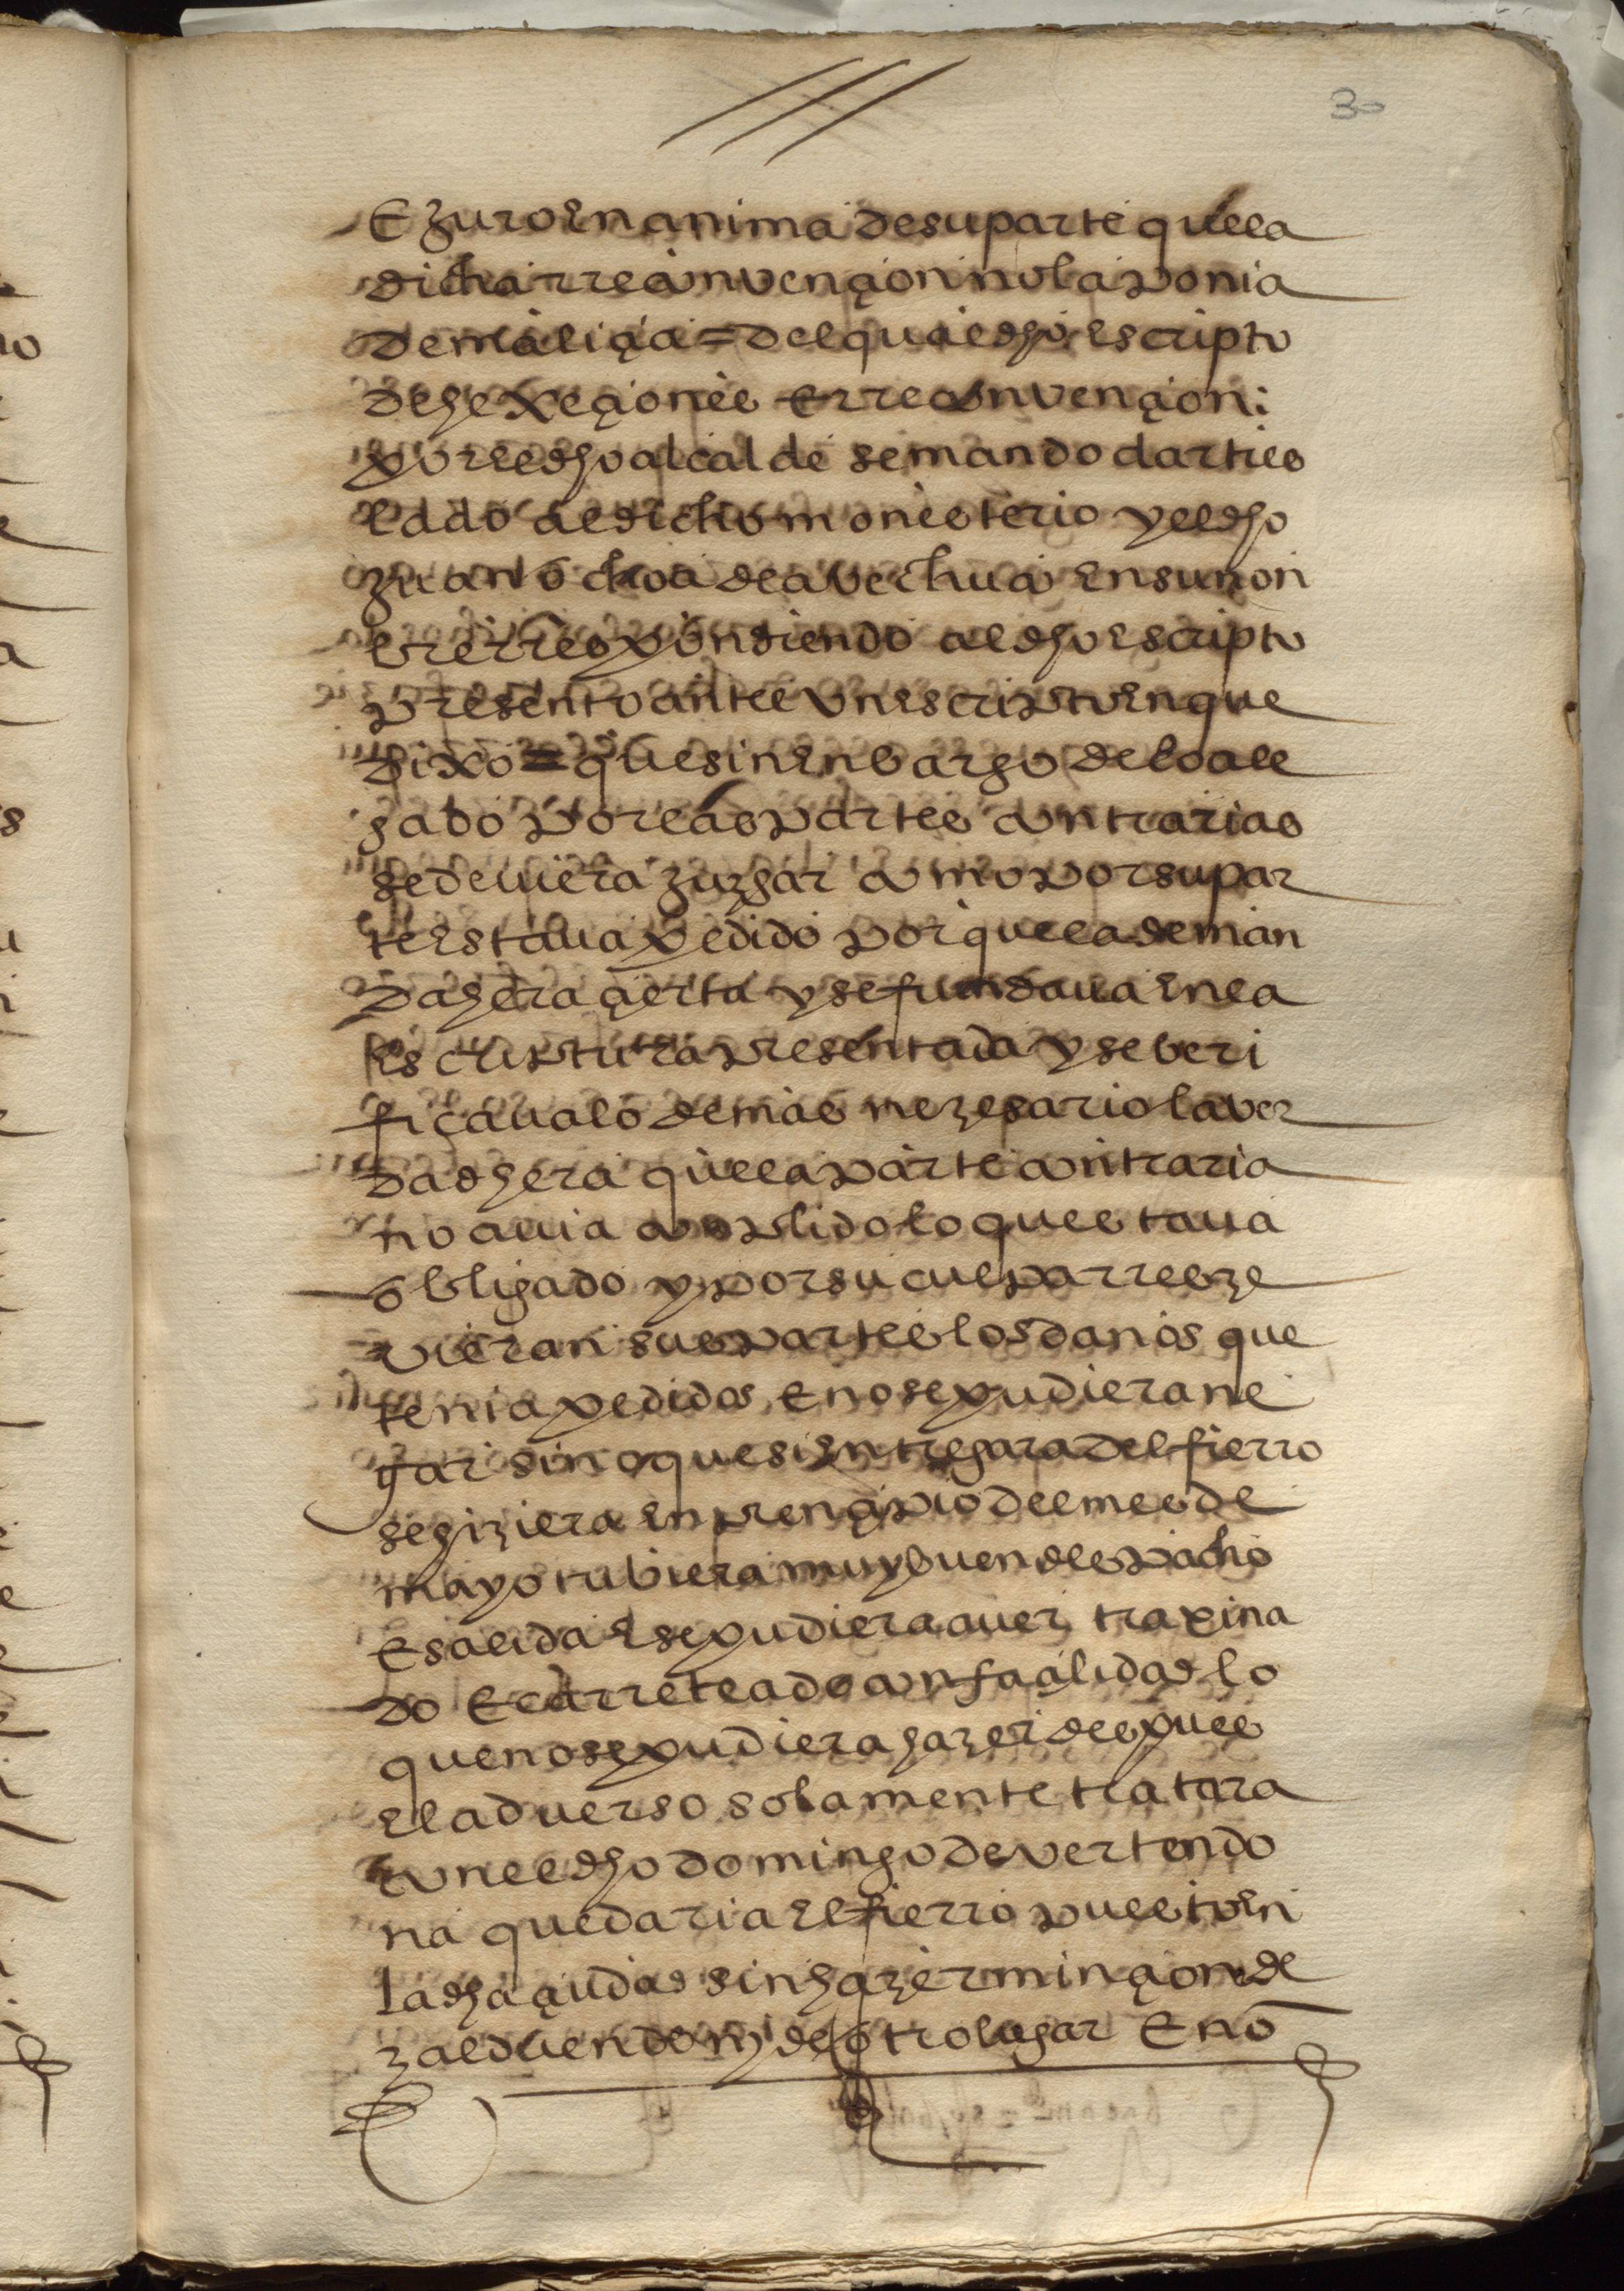 30
E juro en anima de su parte que la
dicha rreconvençion no la ponia
de maliçia = del qual dho escripto
de hexeçiones e rreconvençion
por el dho alcalde se mando dar tres
lado al dicho monesterio y el dho
Juan ochoa de avechua en su non
bre rrespondiendo al dho escripto
presento ante el un escripto en que
dixo = que sin enbargo de lo ale
gado por las partes contrarias
se deuiera juzgar como por su par
te estaua pedido porque la deman
da hera çierta y se fundaua en la
escriptura presentada y se beri
ficaua lo demas nezesario la ver
dad hera que la parte contraria
no auia conplido lo que estaua
obligado y por su culpa rresze
uieran sus partes los danos que
tenia pedidos E no se pudiera ne
gar sino que si entregara del fierro
se hiziera en prençipio del mes de
mayo tubiera muy buen despacho
E salida E se pudiera auer traxina
do E carreteado con façilidad lo
que no se pudiera hazer despues
el aduerso solamente tratara
con el dho domingo de vertendo
na que daria el fierro puesto en
la dha çiudad sin hazer minçion de
zalduendo ny de otro lugar E no